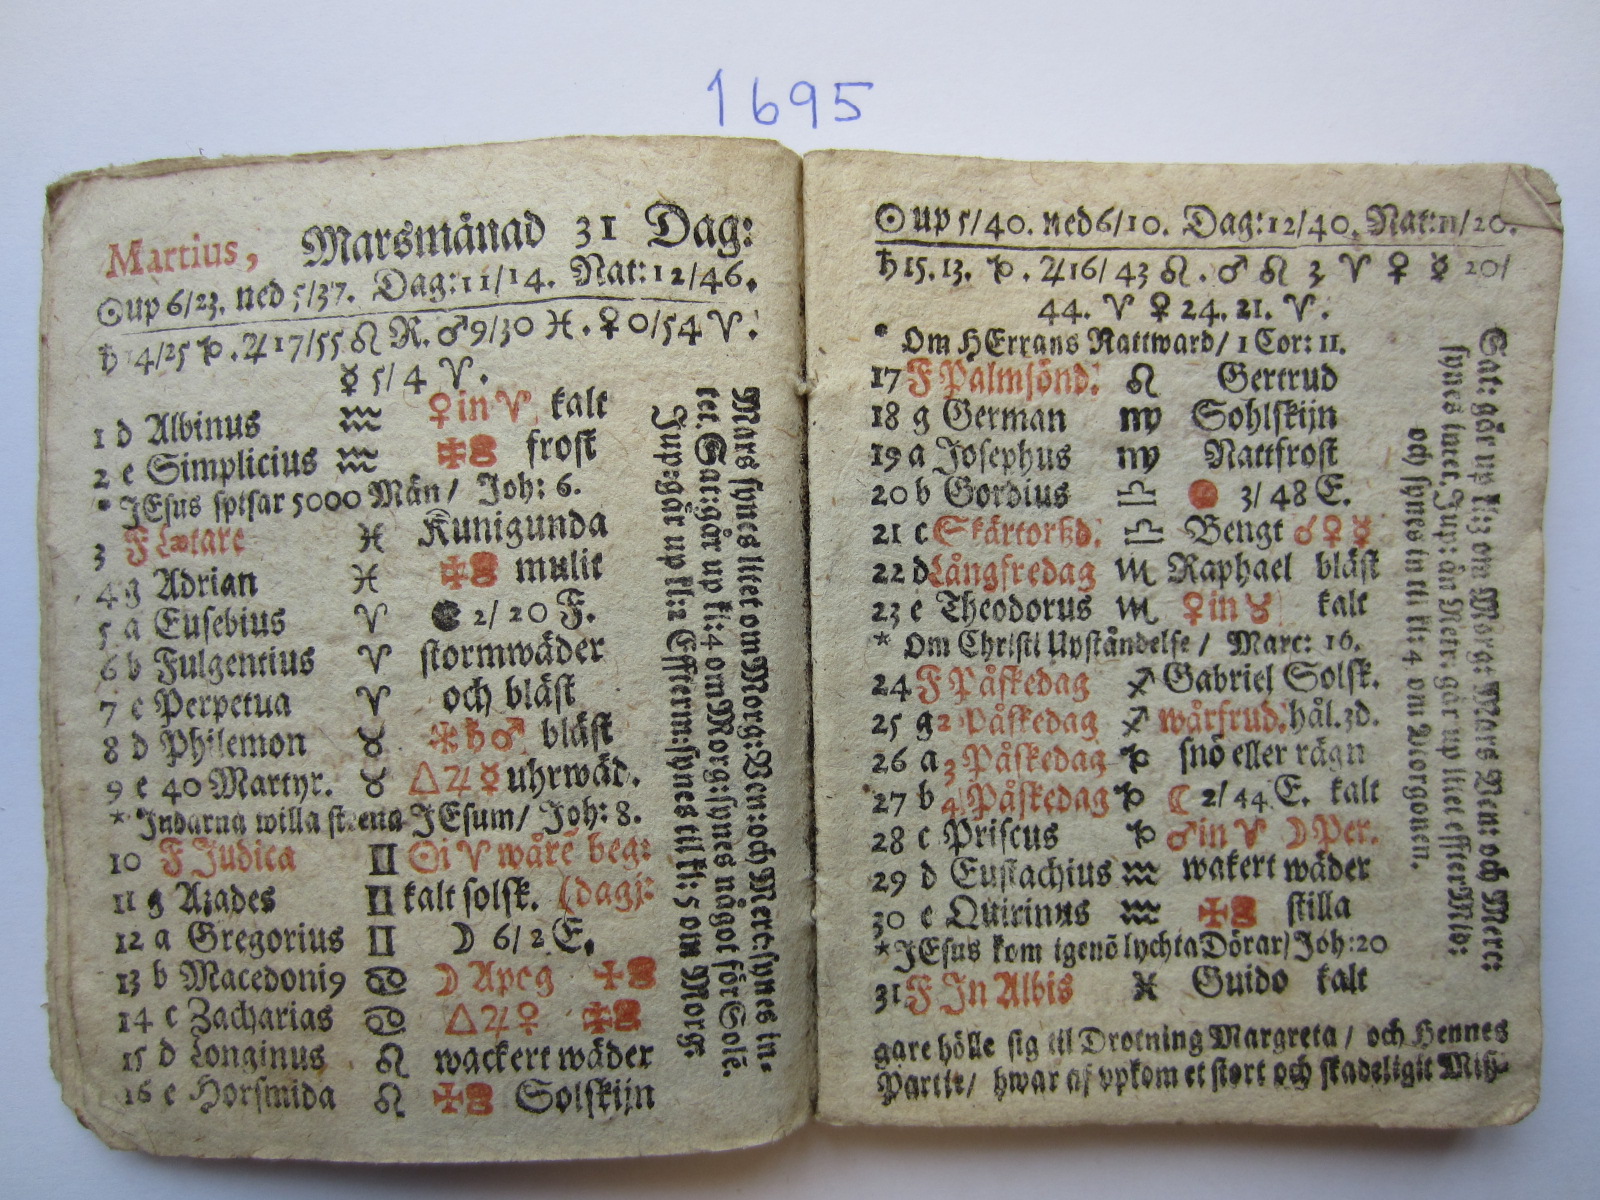 1695
Martius, Marsmånad 31 Dag:
☉ up 6/23. ned 5/37. Dag: 11/14. Nat: 12/46.
♄ 14/25 ♑. ♃ 17/55 ♌ R. ♂ 9/30 ♓. ♀ 0/54 ♈.
☿ 5/4 ♈.
1 d Albinus ♒ ♀ in ♈ kalt
2 e Simplicius ♒ frost
* JEsus spisar 5000 Män / Joh: 6.
3 F Lætare ♓ Kunigunda
4 g Adrian ♓ mulit
5 a Eusebius ♈ 2/20 F.
6 b Fulgentius ♈ stormwäder
7 c Perpetua ♈ och bläst
8 d Philemon ♉ ⚹ ♄ ♂ bläst
9 e 40 Martyr. ♉ △ ♃ ☿ uhrwäd.
* Judarna willa steena JEsum / Joh: 8.
10 F Judica ♊ ☉ i ♈ wåre beg:
11 g Azades ♊ kalt solsk. (dagj:
12 a Gregorius ♊ ☽ 6/2 E.
13 b Macedoni9 ♋ ☽ Apeg
14 c Zacharias ♋ △ ♃ ♀
15 d Longinus ♌ wackert wäder
16 e Horsmida ♌ Solskijn
Mars synes litet om Morg: Ven: och Merc: synes in-
tet. Sat: går up kl: 4 om Morg: synes något för Solē.
Jup: går up kl: 2 Effterm: synes til kl: 5 om Morg:
☉ up 5/40. ned 6/10. Dag: 12/40. Nat: 11/20.
♄ 15. 13. ♑. ♃ 16/43 ♌. ♂ ♌ 3 ♈ ♀ ☿ 20/
44. ♈ ♀ 24. 21. ♈.
* Om HErrans Nattward / 1 Cor: 11.
17 F Palmsönd: ♌ Gertrud
18 g German ♍ Sohlskijn
19 a Josephus ♍ Nattfrost
20 b Gordius ♎ 3/48 E.
21 c Skärtorßd. ♎ Bengt ☌ ♀ ☿
22 d Långfredag ♏ Raphael bläst
23 e Theodorus ♏ ♀ in ♉ kalt
* Om Christi Upståndelse / Marc: 16.
24 F Påskedag ♐ Gabriel Solsk.
25 g 2 Påskedag ♐ wårfrud. hål. 3d.
26 a 3 Påskedag ♑ snö eller rägn
27 b 4 Påskedag ♑ ☾ 2/44 E. kalt
28 c Priscus ♑ ♂ in ♈ ☽ Per.
29 d Eustachius ♒ wakert wäder
30 e Quirinus ♒ stilla
* JEsus kom igenō lychta Dörar / Joh: 20
31 F In Albis ♓ Guido kalt
Sat: går up kl: 3 om Morg: Mars Ven: och Merc:
synes intet. Jup: går up litet effter Mid:
och synes in til kl: 4 om Morgonen.
gare hölle sig til Drotning Margreta / och Hennes
Partie / hwar af vpkom et stort och skadeligit Miß-